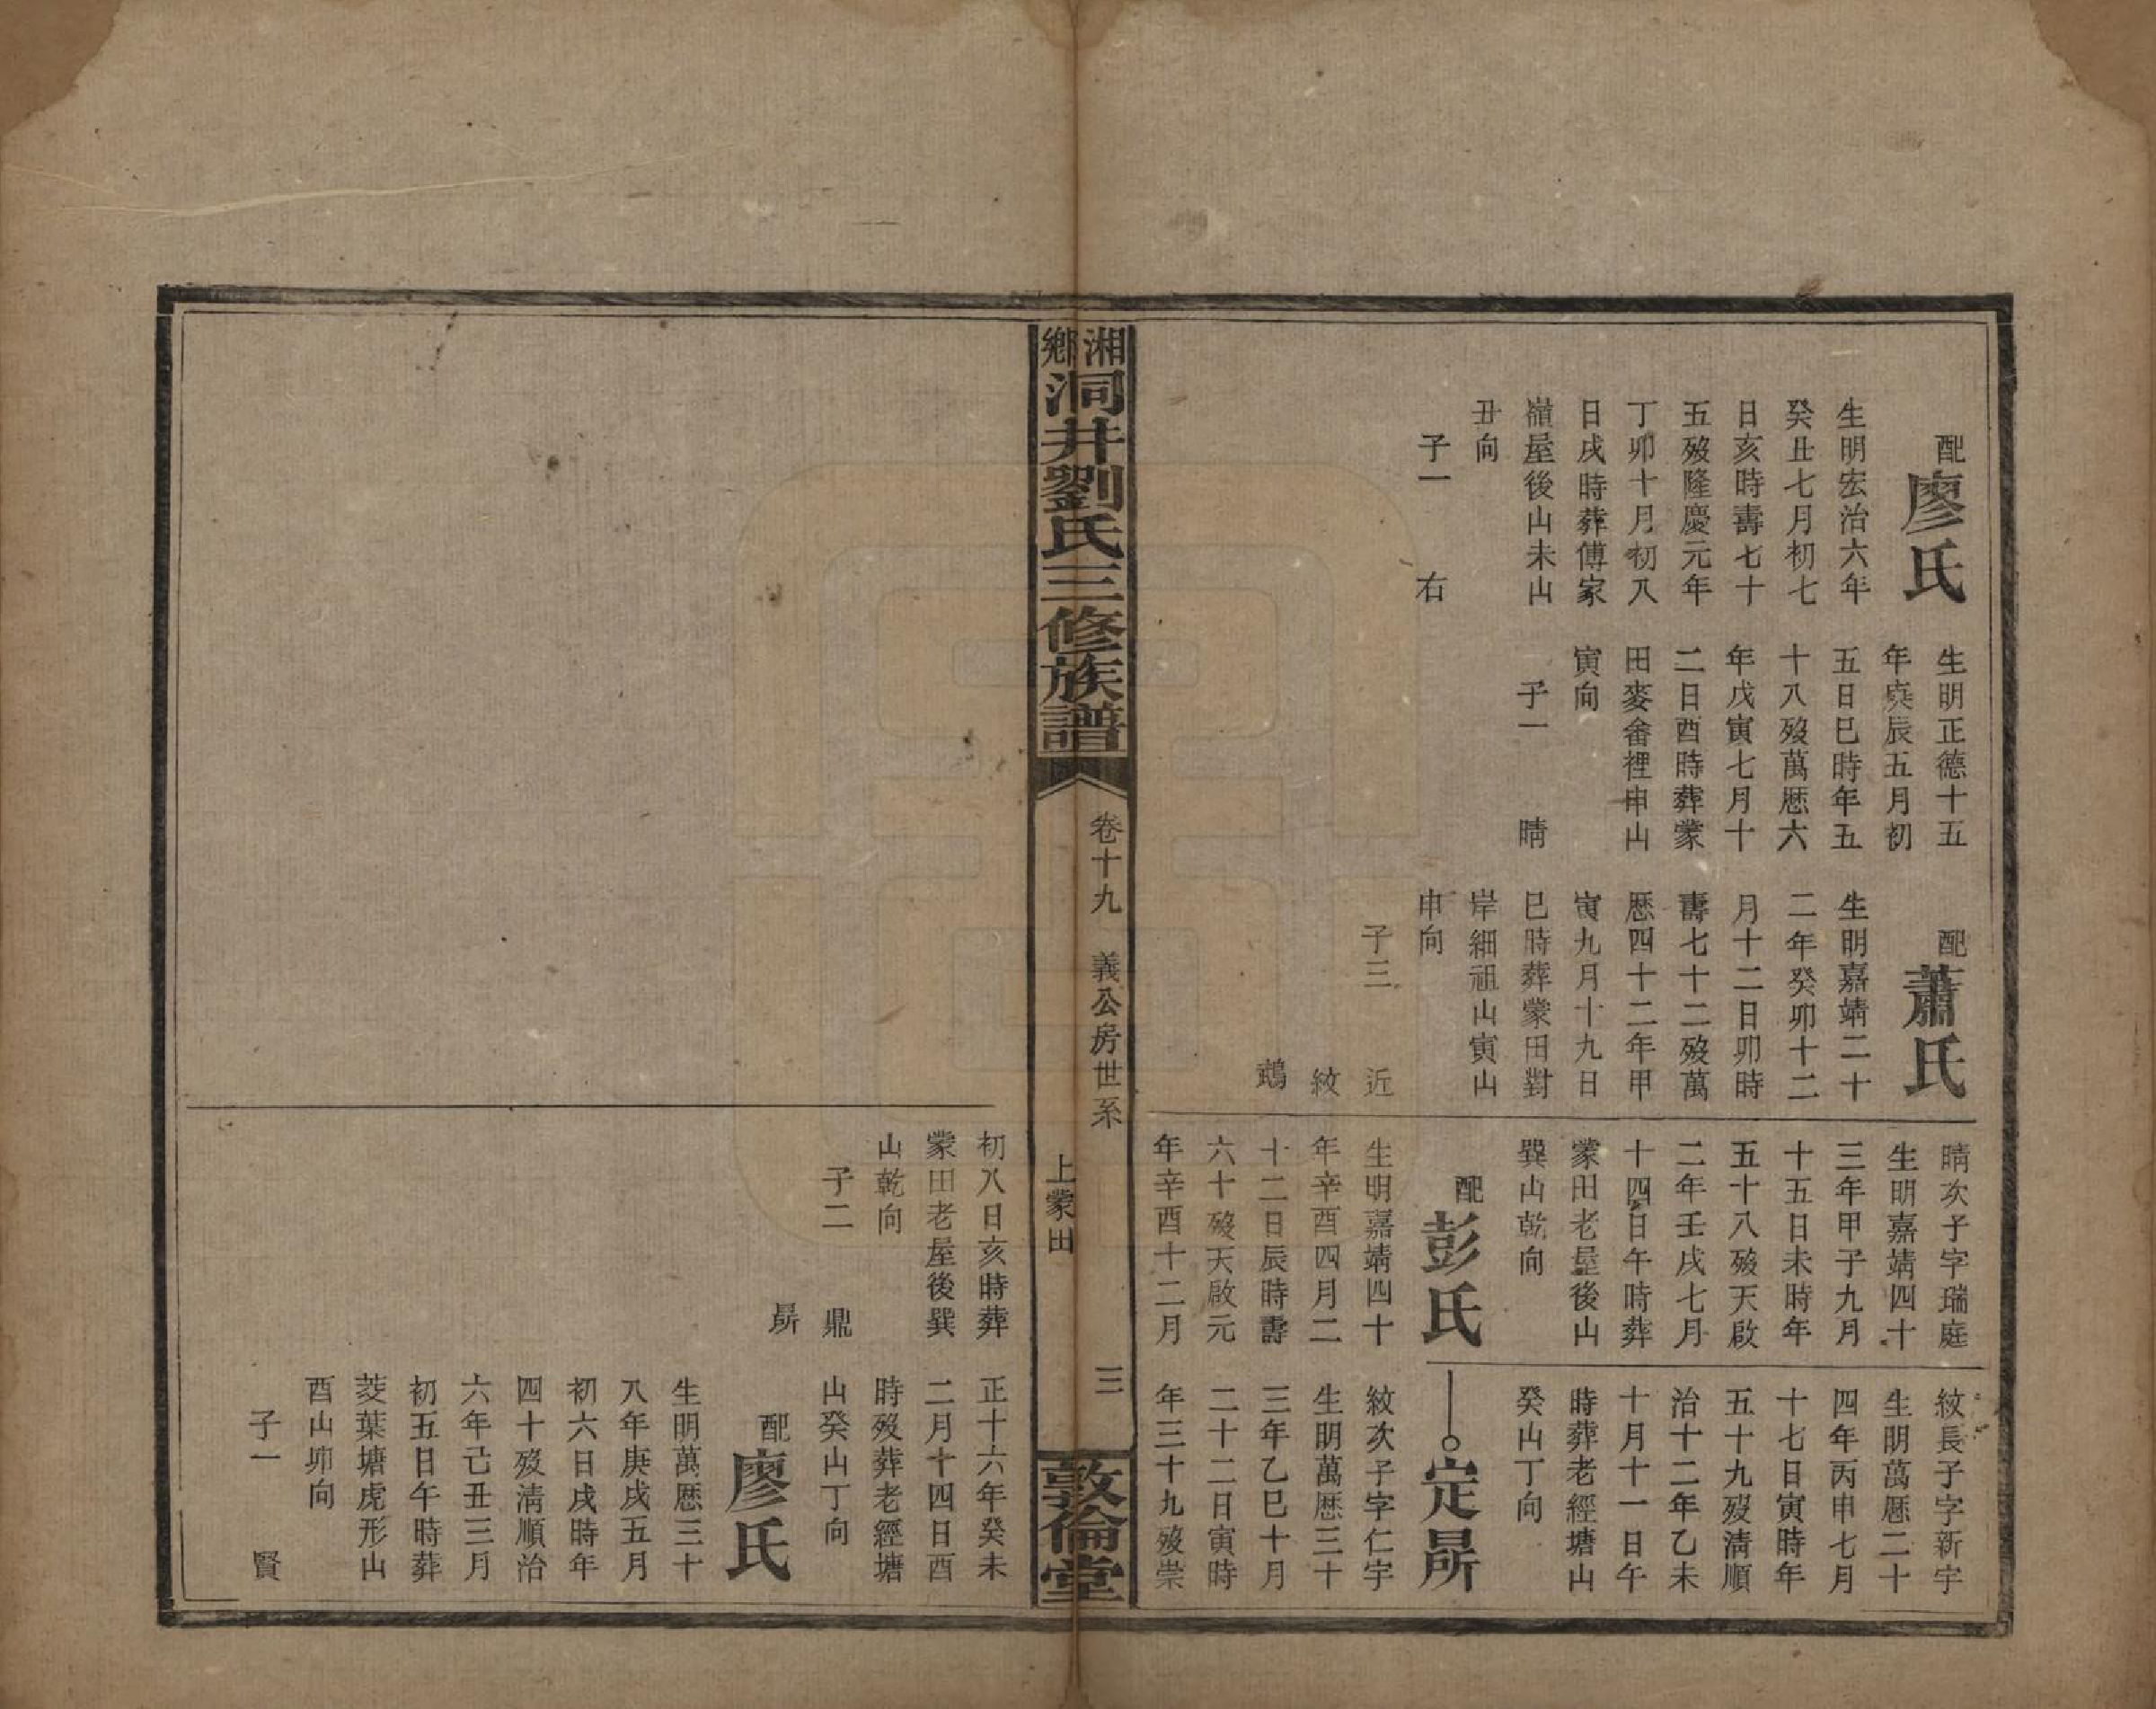 配廖氏
生明宏治六年
癸丑七月初七
日亥時壽七十
五歿隆慶元年
丁卯十月初八
日戌時葬傅家
嶺屋後山未山
丑向
子一　右
生明正德十五
年庚辰五月初
五日巳時年五
十八歿萬厯六
年戊寅七月十
二日酉時葬蒙
田麥畬裡申山
寅向
子一　晴
配蕭氏
生明嘉靖二十
二年癸卯十二
月十二日卯時
壽七十二歿萬
厯四十二年甲
寅九月十九日
巳時葬蒙田對
岸細祖山寅山
申向
子三　近
紋
鵡
晴次子字瑞庭
生明嘉靖四十
三年甲子九月
十五日未時年
五十八歿天啟
二年壬戌七月
十四日午時葬
蒙田老屋後山
巽山乾向
配彭氏
生明嘉靖四十
年辛酉四月二
十二日辰時壽
六十歿天啟元
年辛酉十二月
紋長子字新宇
生明萬厯二十
四年丙申七月
十七日寅時年
五十九歿清順
治十二年乙未
十月十一日午
時葬老經塘山
癸山丁向
定昮
紋次子字仁宇
生明萬厯三十
三年乙巳十月
二十二日寅時
年三十九歿崇
湘鄉洞井劉氏三修族譜
卷十九　義公房世系
上蒙田
三
敦倫堂
初八日亥時葬
蒙田老屋後巽
山乾向
子二　鼎
昮
正十六年癸未
二月十四日酉
時歿葬老經塘
山癸山丁向
配廖氏
生明萬厯三十
八年庚戌五月
初六日戌時年
四十歿清順治
六年己丑三月
初五日午時葬
菱葉塘虎形山
酉山卯向
子一　賢